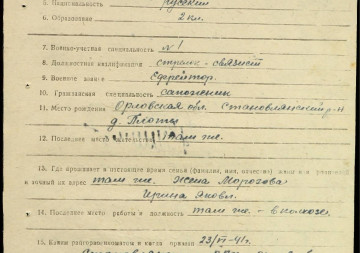 5. Национальность русский
6. Образование 2 кл.
7. Военно-учетная специальность №1
8. Должностная квалификация стрелк-связист
9. Военное звание Ефрейтор.
10. Гражданская специальность сапожник
11. Место рождения Орловская обл. Становлянский р-н
д. Плоты
12. Последнее место жительства там же.
13. Где проживает в настоящее время семья (фамилия, имя, отчество) жены или
и точный их адрес там же. Жена Морозова
Ирина Яковл.
14. Последнее место работы и должность там же - в колхозе.
15. Каким райгорвоенкоматом и когда призван 23/VI-41г.